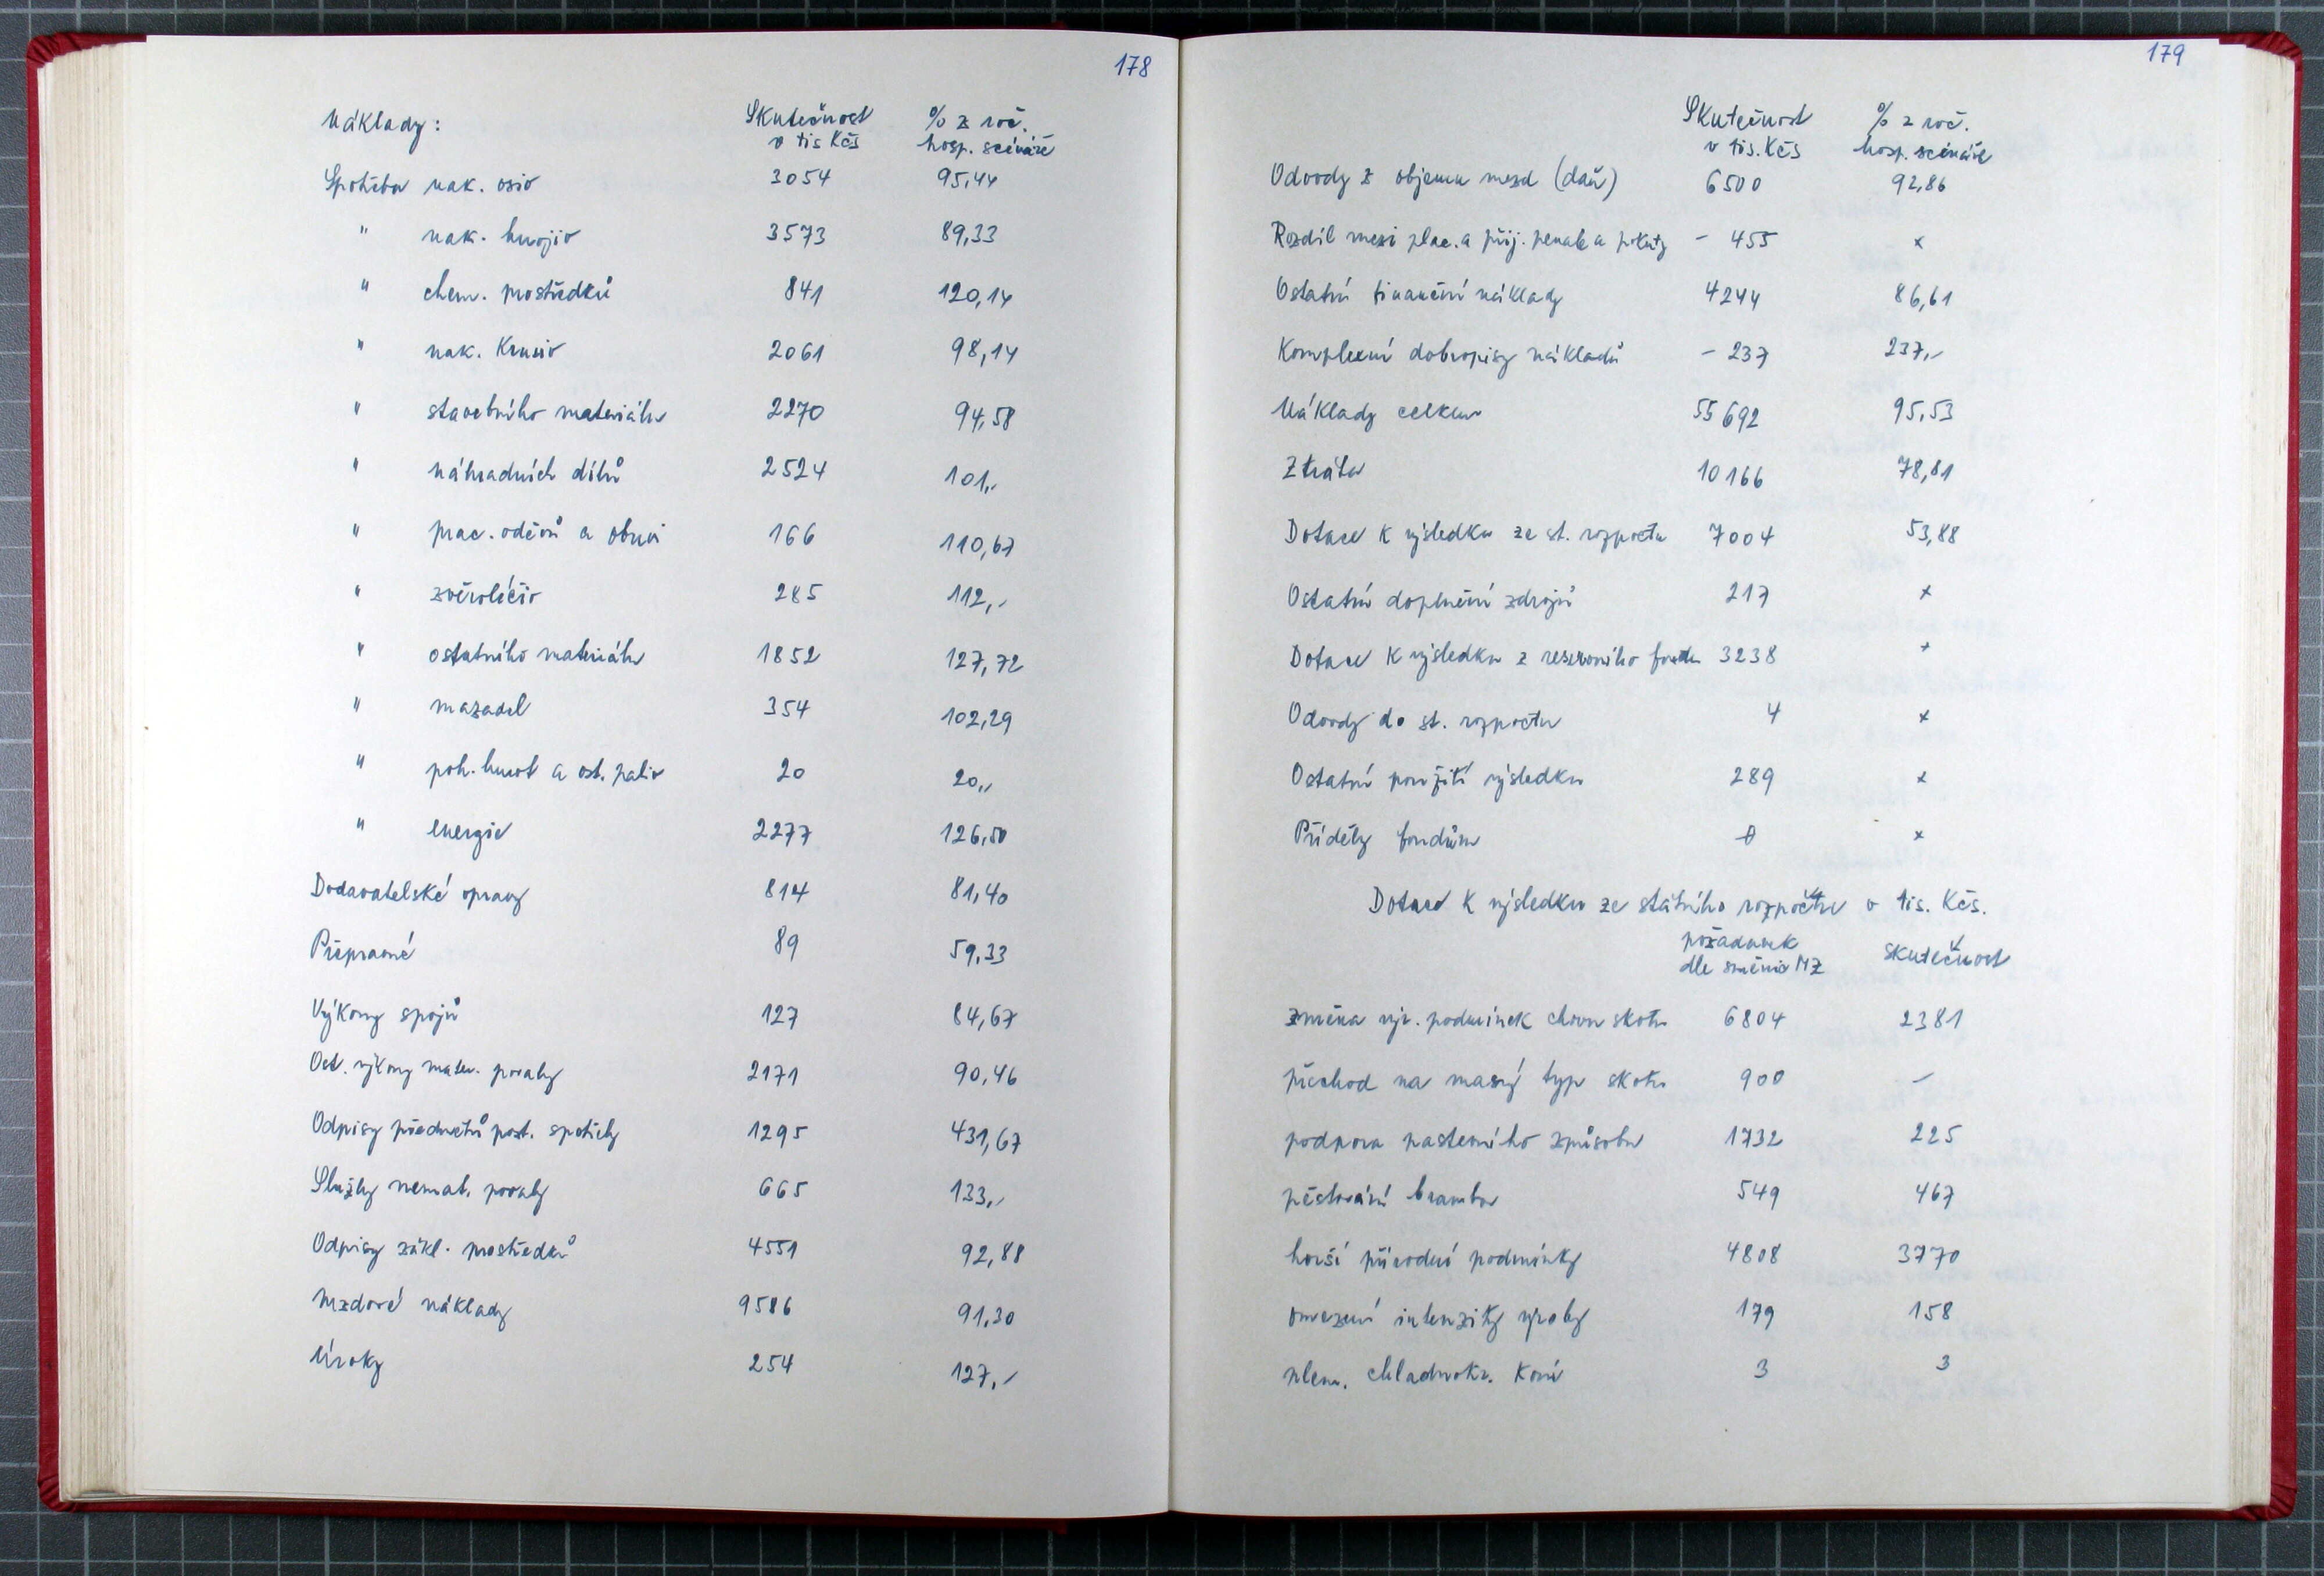 178
Náklady: Skutečnost % z roč.
v tis Kčs hosp. scénáře
Spotřeba nak. osiv 3054 95,44
" nak. hnojiv 3573 89,33
" chem. prostředků 841 120,14
" nak. krmiv 2061 98,14
" stavebního materiálu 2270 94,58
" náhradních dílů 2524 101,-
" prac. oděvů a obuvi 166 110,67
" zvěroléčiv 285 112,-
" ostatního materiálu 1852 127,72
" mazadel 354 102,29
" poh. hmot a ost. paliv 20 20,-
" energie 2277 126,50
Dodavatelské opravy 814 81,40
Přepravné 89 59,33
Výkony spojů 127 84,67
Ost. výkony mater. povahy 2171 90,46
Odpisy předmětů post. spotřeby 1295 431,67
Služby nemat. povahy 665 133,-
Odpisy zákl. prostředků 4551 92,88
Mzdové náklady 9586 91,30
Úroky 254 127,-
179
Skutečnost % z roč.
v tis. Kčs hosp. scénáře
Odvody z objemu mezd (daň) 6500 92,86
Rozdíl mezi plac. a přij. penále a pokuty - 455 x
Ostatní finanční náklady 4244 86,61
Komplexní dobropisy nákladů - 237 237,-
Náklady celkem 55 692 95,53
Ztráta 10 166 78,81
Dotace k výsledku ze st. rozpočtu 7004 53,88
Ostatní doplnění zdrojů 217 x
Dotace k výsledku z rezervního fondu 3238 x
Odvody do st. rozpočtu 4 x
Ostatní použití výsledku 289 x
Příděly fondům 0 x
Dotace k výsledku ze státního rozpočtu v tis. Kčs.
požadavek skutečnost
dle směrnic MZ
změna výr. podmínek chovu skotu 6804 2381
přechod na masný typ skotu 900 -
podpora pastevního způsobu 1732 225
pěstování brambor 549 467
horší přírodní podmínky 4808 3770
omezení intenzity výroby 179 158
plem. chladnokr. koní 3 3